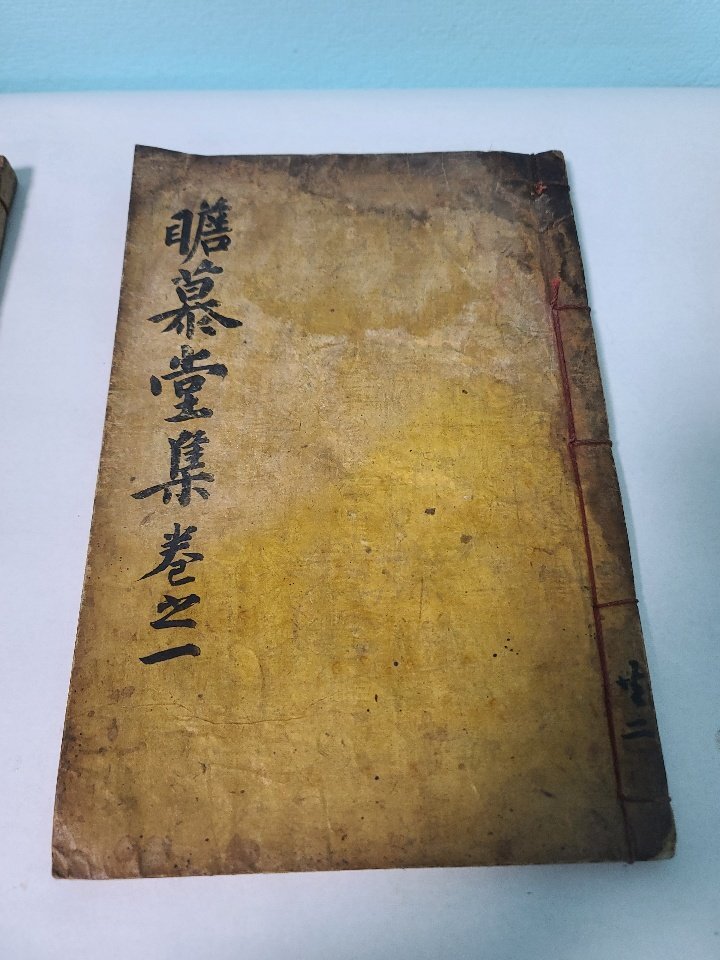 瞻慕堂集 卷之一
共二